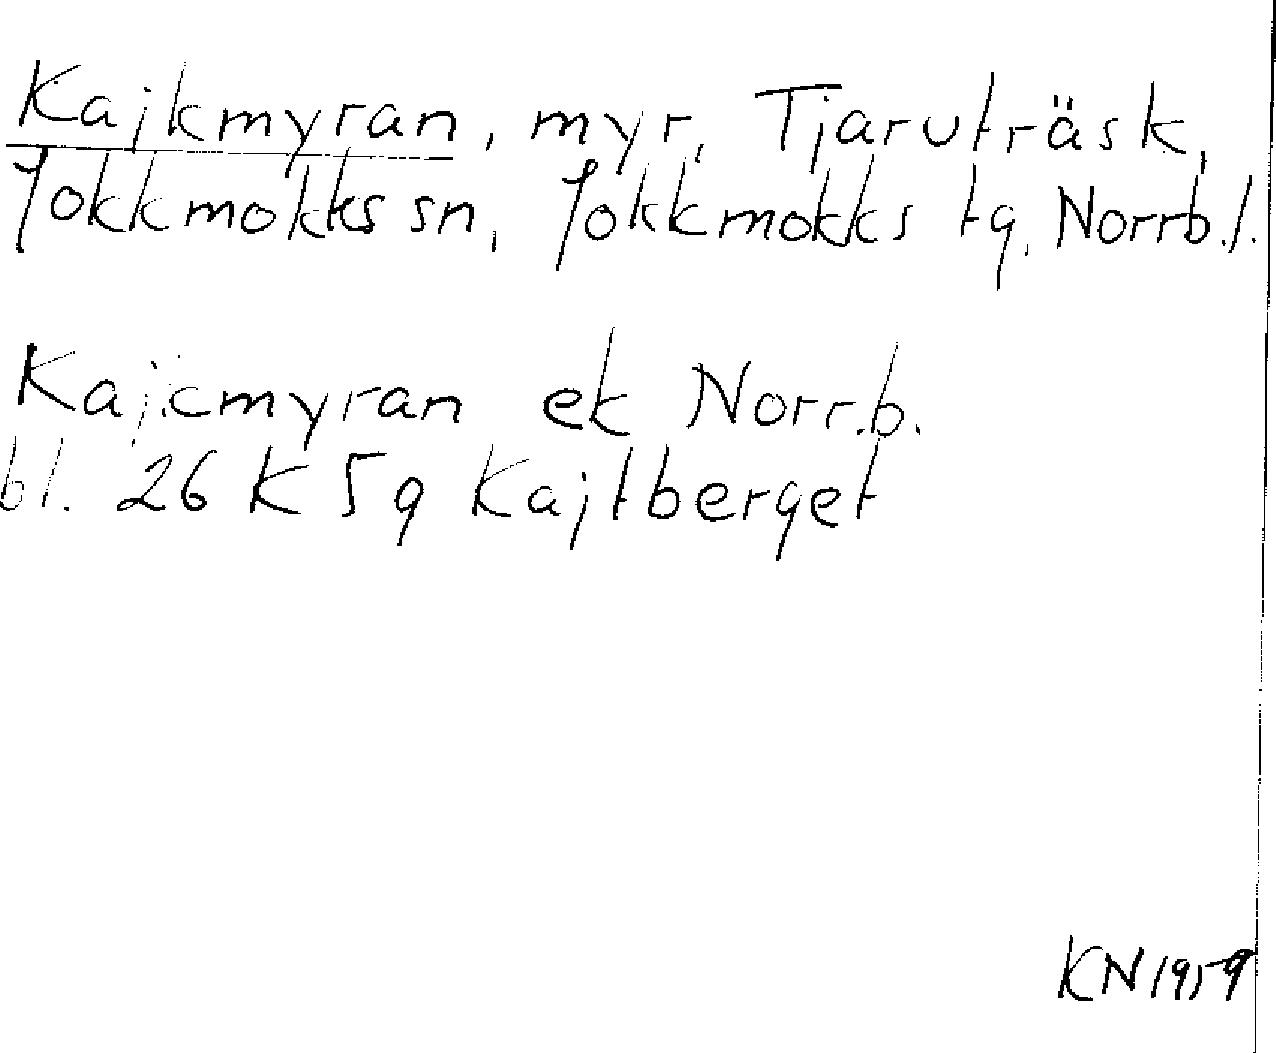 Kajkmyran, myr, Tjaruträsk,
Jokkmokks sn, Jokkmokks tg, Norrb. l.
Kajkmyran ek Norr.b.
bl. 26 K 5 g Kajtberget
KN 1959